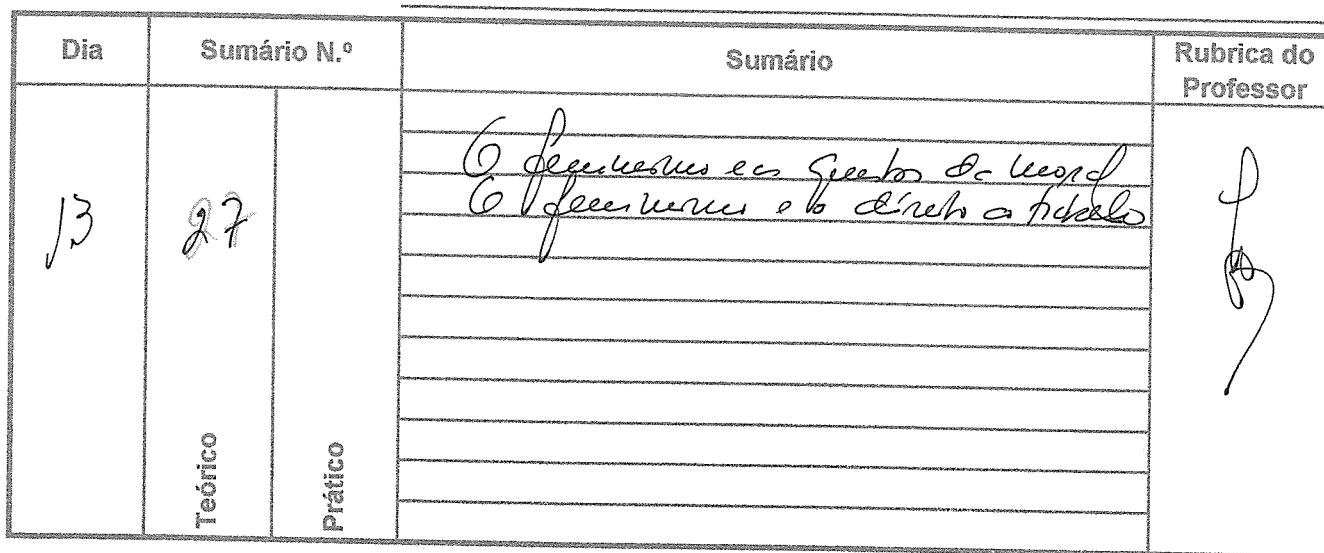 Dia
Sumário N.º
Sumário
Rubrica do
Professor
O feminismo e as questões da moral
O feminismo e o direito a
13
27
Teórico
Prático